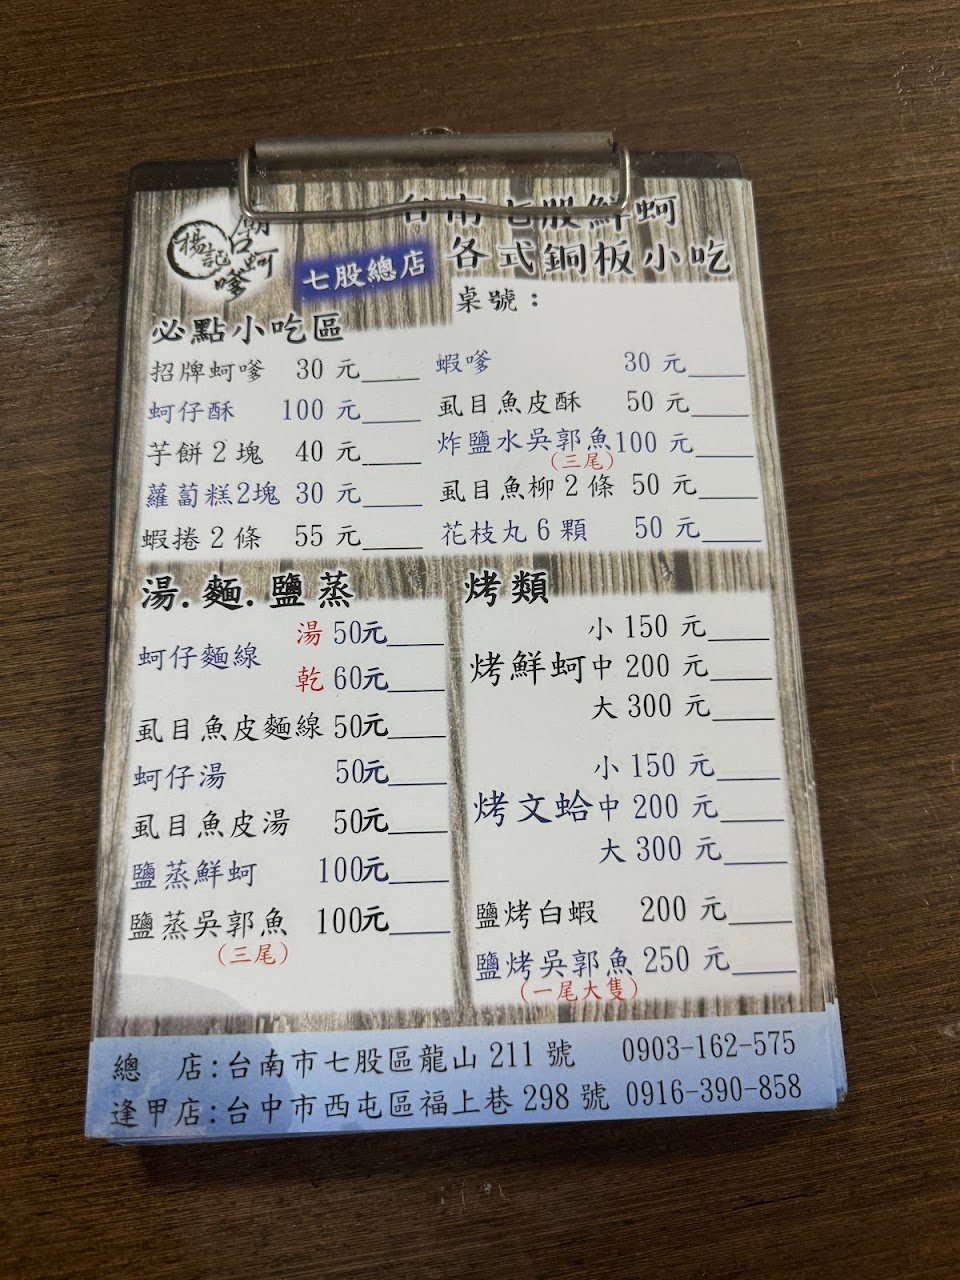 楊記
廟口蚵嗲
七股總店
台南七股鮮蚵
各式銅板小吃
桌號：
必點小吃區
招牌蚵嗲 30 元____
蚵仔酥 100 元____
芋餅2塊 40 元____
蘿蔔糕2塊 30 元____
蝦捲2條 55 元____
蝦嗲 30 元____
虱目魚皮酥 50 元____
炸鹽水吳郭魚100 元____
(三尾)
虱目魚柳2條 50 元____
花枝丸6顆 50 元____
湯.麵.鹽蒸
蚵仔麵線 湯 50元____
乾 60元____
虱目魚皮麵線 50元____
蚵仔湯 50元____
虱目魚皮湯 50元____
鹽蒸鮮蚵 100元____
鹽蒸吳郭魚 100元____
(三尾)
烤類
烤鮮蚵 小 150 元____
中 200 元____
大 300 元____
烤文蛤 小 150 元____
中 200 元____
大 300 元____
鹽烤白蝦 200 元____
鹽烤吳郭魚 250 元____
(一尾大隻)
總 店:台南市七股區龍山 211 號 0903-162-575
逢甲店:台中市西屯區福上巷 298 號 0916-390-858